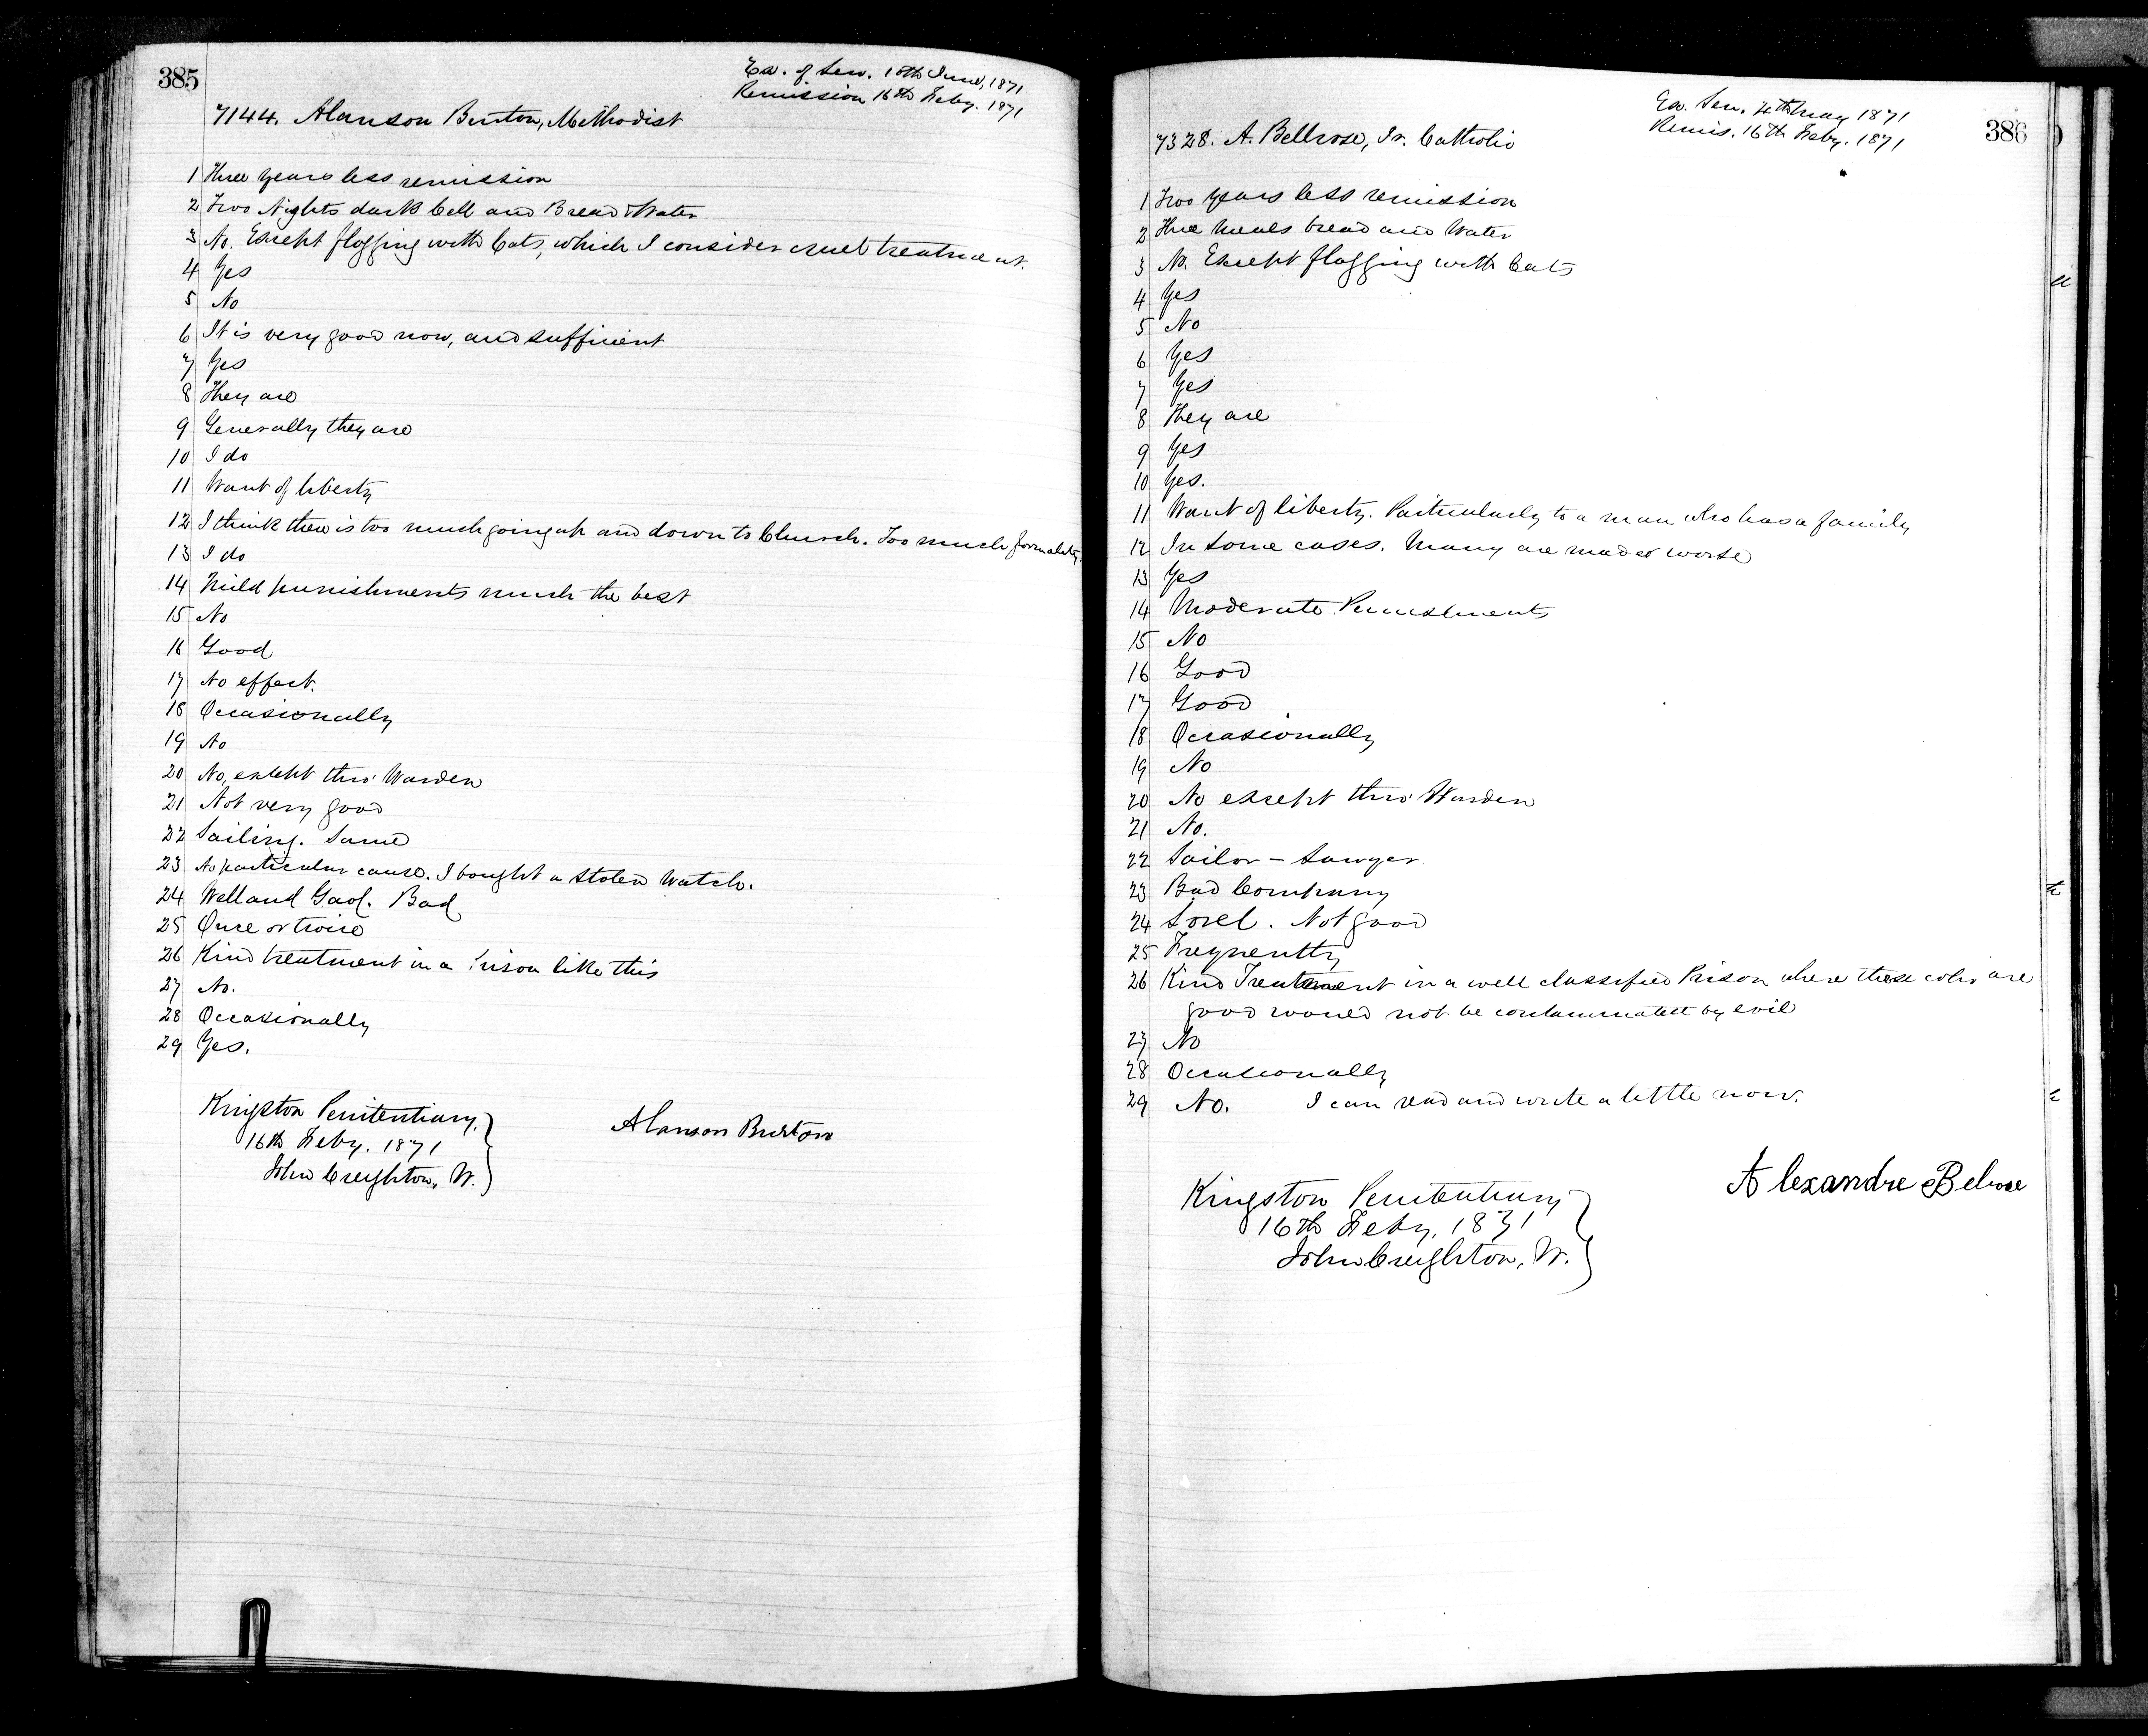 385
Ex. of Sen. 10th June, 1871
Remission 16th Feby. 1871
7144. Alanson Burton, Methodist
1 Three years less remission
2 Two Nights dark Cell and Bread & Water
3 No. Except flogging with Cats, which I consider cruel treatment.
4 Yes
5 No
6 It is very good now, and sufficient
7 Yes
8 They are
9 Generally they are
10 I do
11 Want of liberty
12 I think there is too much going up and down to Church. Too much formality.
13 I do
14 Mild punishments much the best
15 No
16 Good
17 No effect.
18 Occasionally
19 No
20 No, except thro' Warden
21 Not very good
22 Sailing. Same
23 No particular cause. I bought a stolen Watch.
24 Welland Gaol. Bad
25 Once or twice
26 Kind treatment in a Prison like this
27 No.
28 Occasionally
29 Yes.
Kingston Penitentiary,
16th Feby. 1871
John Creighton, W.
Alanson Burton
386
Ex. Sen. 4th May 1871
Remis. 16th Feby. 1871
7328. A. Bellrose, Fr. Catholic
1 Two years less remission
2 Three Meals bread and Water
3 No. Except flogging with Cats
4 Yes
5 No
6 Yes
7 Yes
8 They are
9 Yes
10 Yes.
11 Want of liberty. Particularly to a man who has a family
12 In some cases. Many are made worse
13 Yes
14 Moderate Punishments
15 No
16 Good
17 Good
18 Occasionally
19 No
20 No except thro' Warden
21 No.
22 Sailor – Sawyer
23 Bad Company
24 Sorel. Not good
25 Frequently
26 Kind Treatment in a well classified Prison where those who are
good would not be contaminated by evil
27 No
28 Occasionally
29 No. I can read and write a little now.
Kingston Penitentiary
16th Feby. 1871
John Creighton, W.
Alexandre Belrose